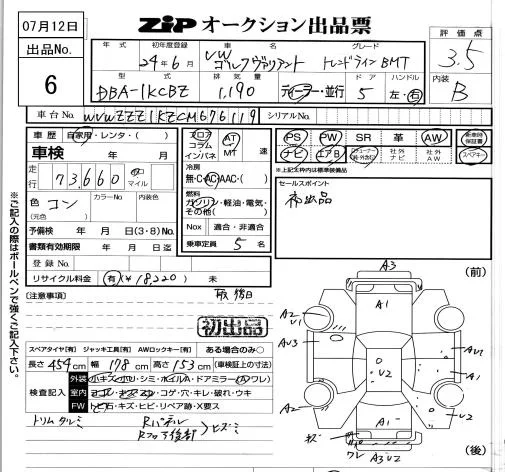 07月12日
ZIP オークション出品票
出品No.
6
年式 初年度登録 車名 グレード
24年6月 VW ゴルフヴァリアント トレンドライン BMT
型式 排気量 ドア ハンドル
DBA-1KCBZ 1,190 ディーラー・並行 5 左・右
評価点
3.5
内装
B
車台No. WVWZZZ1KZCM676119 シリアルNo.
車歴 自家用・レンタ・( )
車検 年 月
走行 73,660 km マイル
色 コン カラーNo. 内装色
(元色)
予備検 年 月 日(3・8)No.
書類有効期限 年 月 日迄
登録No.
リサイクル料金 有(¥18,220) 未
フロア コラム インパネ
AT MT 速
冷房
無・C・AC・AAC・( )
燃料
ガソリン・軽油・電気・その他( )
Nox 適合・非適合
乗車定員 5 名
PS PW SR 革 AW 新車時保証書
ナビ エアB 社外ナビ 社外AW スペアキー
※上記太枠内は標準装備品
セールスポイント
初出品
※ご記入の際はボールペンで強くご記入下さい。
[注意事項]
初出品
スペアタイヤ[有] ジャッキ工具[有] AWロックキー[有] ある場合のみ○
長さ 454cm 幅 178cm 高さ 153cm (車検証上の寸法)
検査記入
外装 小キズ・小ヘコ・シミ・ホイルA・ドアミラー(A・ワレ)
室内 コゲ・穴・キレ・破れ・ウキ
FW トビ石・キズ・ヒビ・リペア跡・X要ス
トリムタルミ
Rパネル
Rフロア後計 ヒズミ
(前)
A3
A1
A2
U1
AU3
U2
AU1
A1
A2
U2
A1
キズ
ワレ
A3U2
(後)